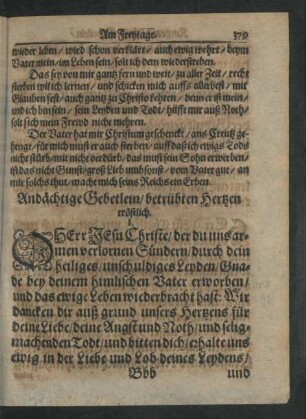 Am Freytage. 379
wieder leben / wird schon verklärt / auch ewig wehrt / beym
Vater mein / im Leben sein / solt ich den wiedersterben.
Das sey von mir gantz fern und weit / zu aller Zeit / recht
sterben wil ich lernen / und schicken mich auffs allerbest / mit
Glauben fest / auch gantz zu Christo kehren / denn er ist mein /
und ich bin sein / sein Leyden und Todt / hilfft mir auß Noth /
solt sich mein Frewd nicht mehren.
Der Vater hat mit Christum geschenckt / ans Creutz ge-
henge / für mich must er auch sterben / auff daß ich ewig Tods
nicht stürb / mit nicht verdürb / das must sein Sohn erwerben /
ist das nicht Gunst / groß Lieb umb sonst / vom Vater gut / an
mir solchs thut / mach mich seins Reichs ein Erben.
Andächtige Gebetlein / betrübten Hertzen
tröstlich.
I.
O HErr JEsu Christe / der du uns ar-
men verlornen Sündern / durch dein
heiliges / unschuldiges Leyden / Gna-
de bey deinem himlischen Vater erworben /
und das ewige Leben wiederbracht hast: Wir
dancken dir auß grund unsers Hertzens für
deine Liebe / deine Angst und Noth / und selig-
machenden Todt / und bitten dich / erhalte uns
ewig in der Liebe und Lob deines Leydens /
Bbb und